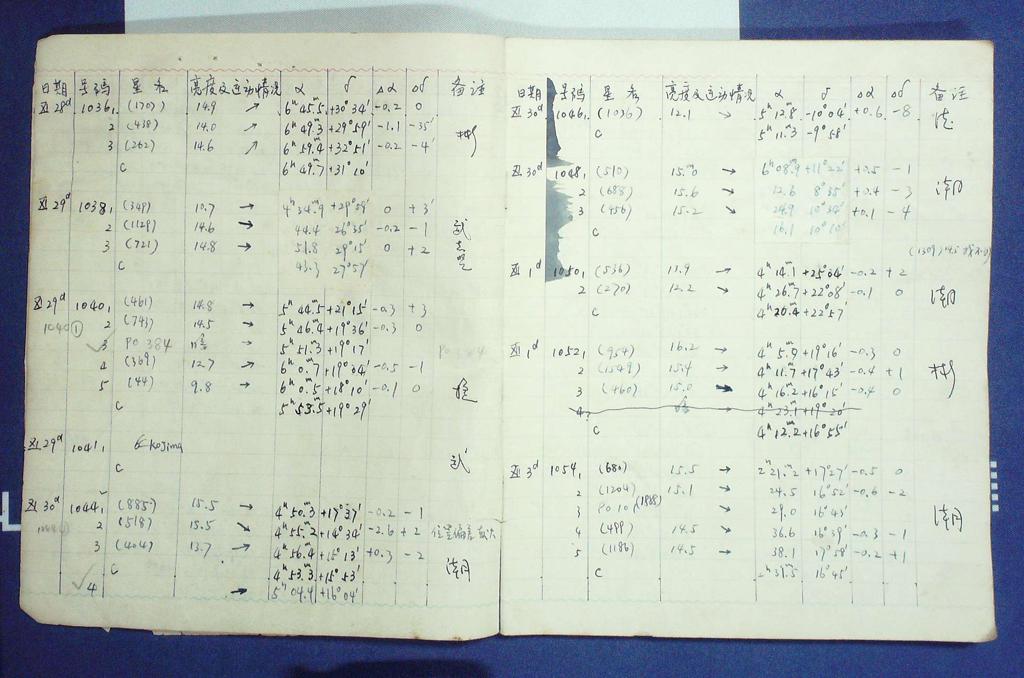 日期 号码 星名 亮度及运动情况 α δ Δα Δδ 备注
Ⅺ 28ᵈ 1036, (170) 14.9 ↗ 6ʰ45ᵐ.5 +30°34′ -0.2 0
2 (438) 14.0 ↗ 6ʰ49ᵐ.3 +29°59′ -1.1 -35′
3 (262) 14.6 ↗ 6ʰ59ᵐ.4 +32°51′ -0.2 -4′ 彬
C 6ʰ49ᵐ.7 +31°10′
Ⅺ 29ᵈ 1038, (349) 10.7 → 4ʰ34ᵐ.9 +29°58′ 0 +3′
2 (1129) 14.6 → 44.4 26°35′ -0.2 -1
3 (721) 14.8 → 51.8 29°15′ 0 +2
C 43.3 27°57′
Ⅺ 29ᵈ 1040, (461) 14.8 → 5ʰ44ᵐ.5 +21°15′ -0.3 +3
1040① 2 (743) 14.5 → 5ʰ46ᵐ.4 +19°36′ -0.3 0
3 PO 384 暗 → 5ʰ51ᵐ.3 +19°17′ PO 384
4 (369) 12.7 ↗ 6ʰ0ᵐ.7 +19°34′ -0.5 -1
5 (44) 9.8 → 6ʰ0ᵐ.5 +18°10′ -0.1 0
C 5ʰ53ᵐ.5 +19°29′
Ⅺ 29ᵈ 1041, Kojima
C 武
Ⅺ 30ᵈ 1044, (885) 15.5 → 4ʰ50ᵐ.3 +17°37′ -0.2 -1
2 (518) 15.5 ↘ 4ʰ55ᵐ.2 +14°34′ -2.6 +2 位置偏差较大
3 (404) 13.7 → 4ʰ56ᵐ.4 +15°13′ +0.3 -2
C 4ʰ53ᵐ.3 +15°53′ 潮
✓ 4 → 5ʰ04ᵐ.4 +16°04′
日期 号码 星名 亮度及运动情况 α δ Δα Δδ 备注
Ⅺ 30ᵈ 1046, (1036) 12.1 → 5ʰ12ᵐ.8 -10°04′ +0.6 -8
C 5ʰ11ᵐ.3 -9°58′
Ⅺ 30ᵈ 1048, (510) 15ᵐ.0 → 6ʰ08ᵐ.9 +11°22′ +0.5 -1
2 (688) 15.6 → 12.6 8°35′ +0.4 -3 潮
3 (456) 15.2 ↘ 24.9 10°34′ +0.1 -4
C 16.1 10°10′
(1309) 14.5 找不到
Ⅻ 1ᵈ 1050, (536) 11.9 → 4ʰ14ᵐ.1 +25°04′ -0.2 +2
2 (270) 12.2 → 4ʰ26ᵐ.7 +22°08′ -0.1 0 潮
C 4ʰ20ᵐ.4 +22°57′
Ⅻ 1ᵈ 1052, (954) 16.2 → 4ʰ5ᵐ.9 +19°16′ -0.3 0
2 (1549) 15.4 → 4ʰ11ᵐ.7 +17°43′ -0.4 +1 彬
3 (460) 15.0 → 4ʰ16ᵐ.2 +16°15′ -0.4 0
4? 暗 → 4ʰ23ᵐ.1 +19°20′
C 4ʰ12ᵐ.2 +16°55′
Ⅻ 3ᵈ 1054, (680) 15.5 → 2ʰ21ᵐ.2 +17°27′ -0.5 0
2 (1204) 15.1 → 24.5 16°52′ -0.6 -2
3 PO 10 (1888) 29.0 16°43′
4 (499) 14.5 → 36.6 16°39′ -0.3 -1 潮
5 (1186) 14.5 → 38.1 17°58′ -0.2 +1
C 2ʰ31ᵐ.5 16°45′